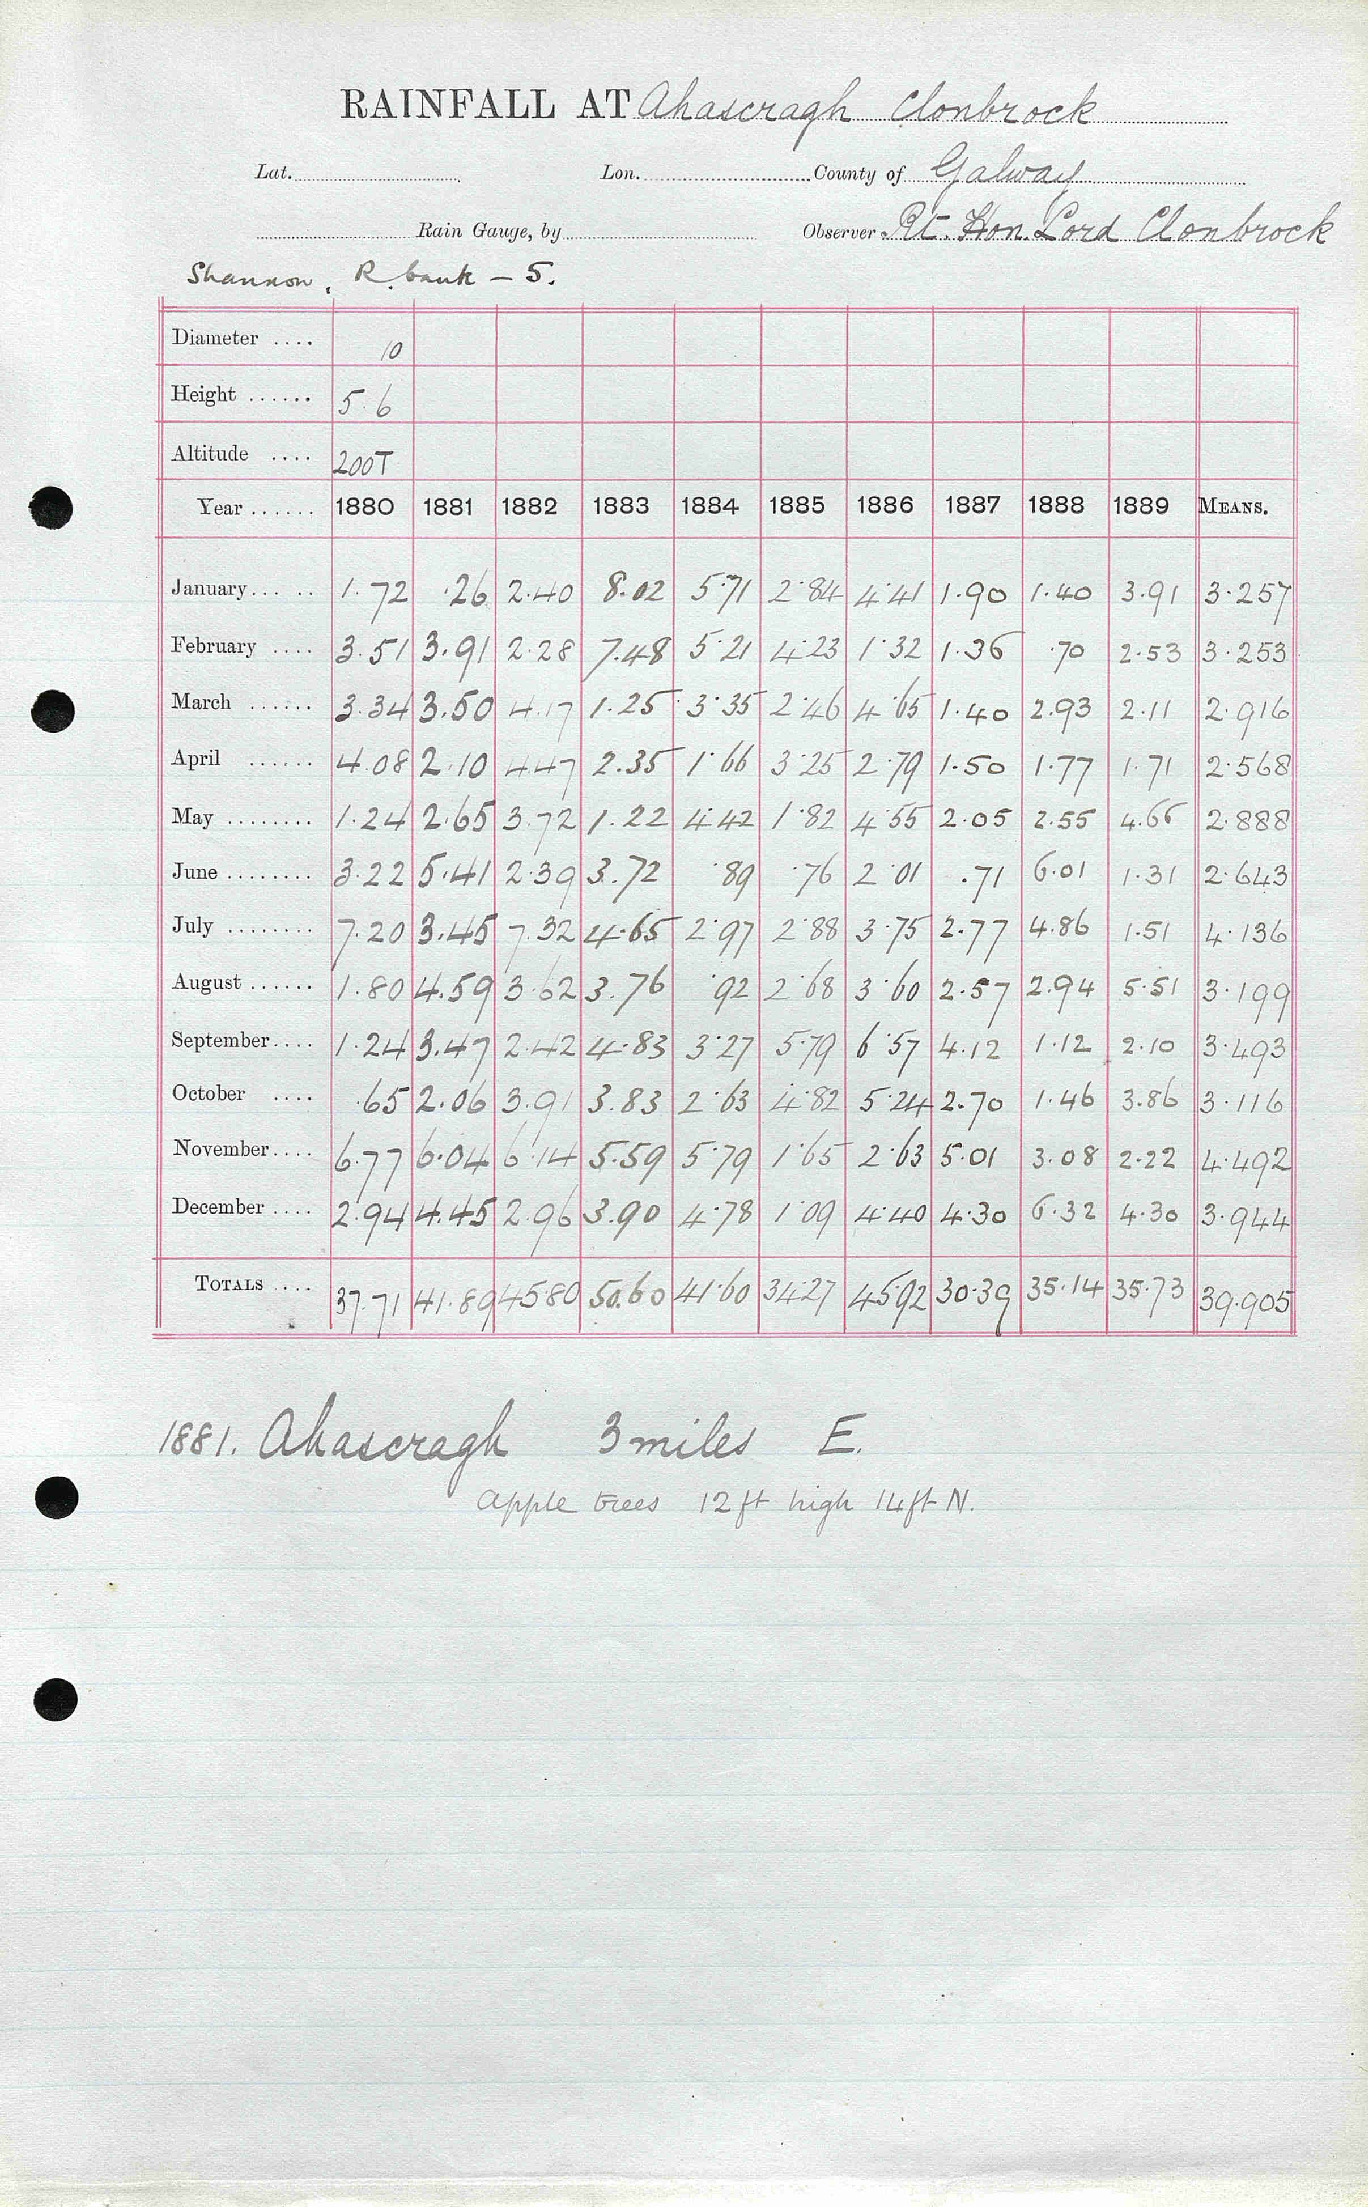 RAINFALL AT Ahascragh Clonbrock
Lat. Lon. County of Galway
Rain Gauge, by Observer Rt. Hon. Lord Clonbrock
Shannon, R. bank – 5.
Diameter .... 10
Height ...... 5.6
Altitude .... 200T
Year ...... 1880 1881 1882 1883 1884 1885 1886 1887 1888 1889 MEANS.
January ... .. 1.72 .26 2.40 8.02 5.71 2.84 4.41 1.90 1.40 3.91 3.257
February .... 3.51 3.91 2.28 7.48 5.21 4.23 1.32 1.36 .70 2.53 3.253
March ...... 3.34 3.50 4.17 1.25 3.35 2.46 4.65 1.40 2.93 2.11 2.916
April ...... 4.08 2.10 4.47 2.35 1.66 3.25 2.79 1.50 1.77 1.71 2.568
May ........ 1.24 2.65 3.72 1.22 4.42 1.82 4.55 2.05 2.55 4.66 2.888
June ........ 3.22 5.41 2.39 3.72 .89 .76 2.01 .71 6.01 1.31 2.643
July ........ 7.20 3.45 7.32 4.65 2.97 2.88 3.75 2.77 4.86 1.51 4.136
August ...... 1.80 4.59 3.62 3.76 .92 2.68 3.60 2.57 2.94 5.51 3.199
September .... 1.24 3.47 2.42 4.83 3.27 5.79 6.57 4.12 1.12 2.10 3.493
October .... .65 2.06 3.91 3.83 2.63 4.82 5.24 2.70 1.46 3.86 3.116
November .... 6.77 6.04 6.14 5.59 5.79 1.65 2.63 5.01 3.08 2.22 4.492
December .... 2.94 4.45 2.96 3.90 4.78 1.09 4.40 4.30 6.32 4.30 3.944
TOTALS .... 37.71 41.89 45.80 50.60 41.60 34.27 45.92 30.39 35.14 35.73 39.905
1881. Ahascragh 3 miles E.
apple trees 12 ft high 14 ft N.